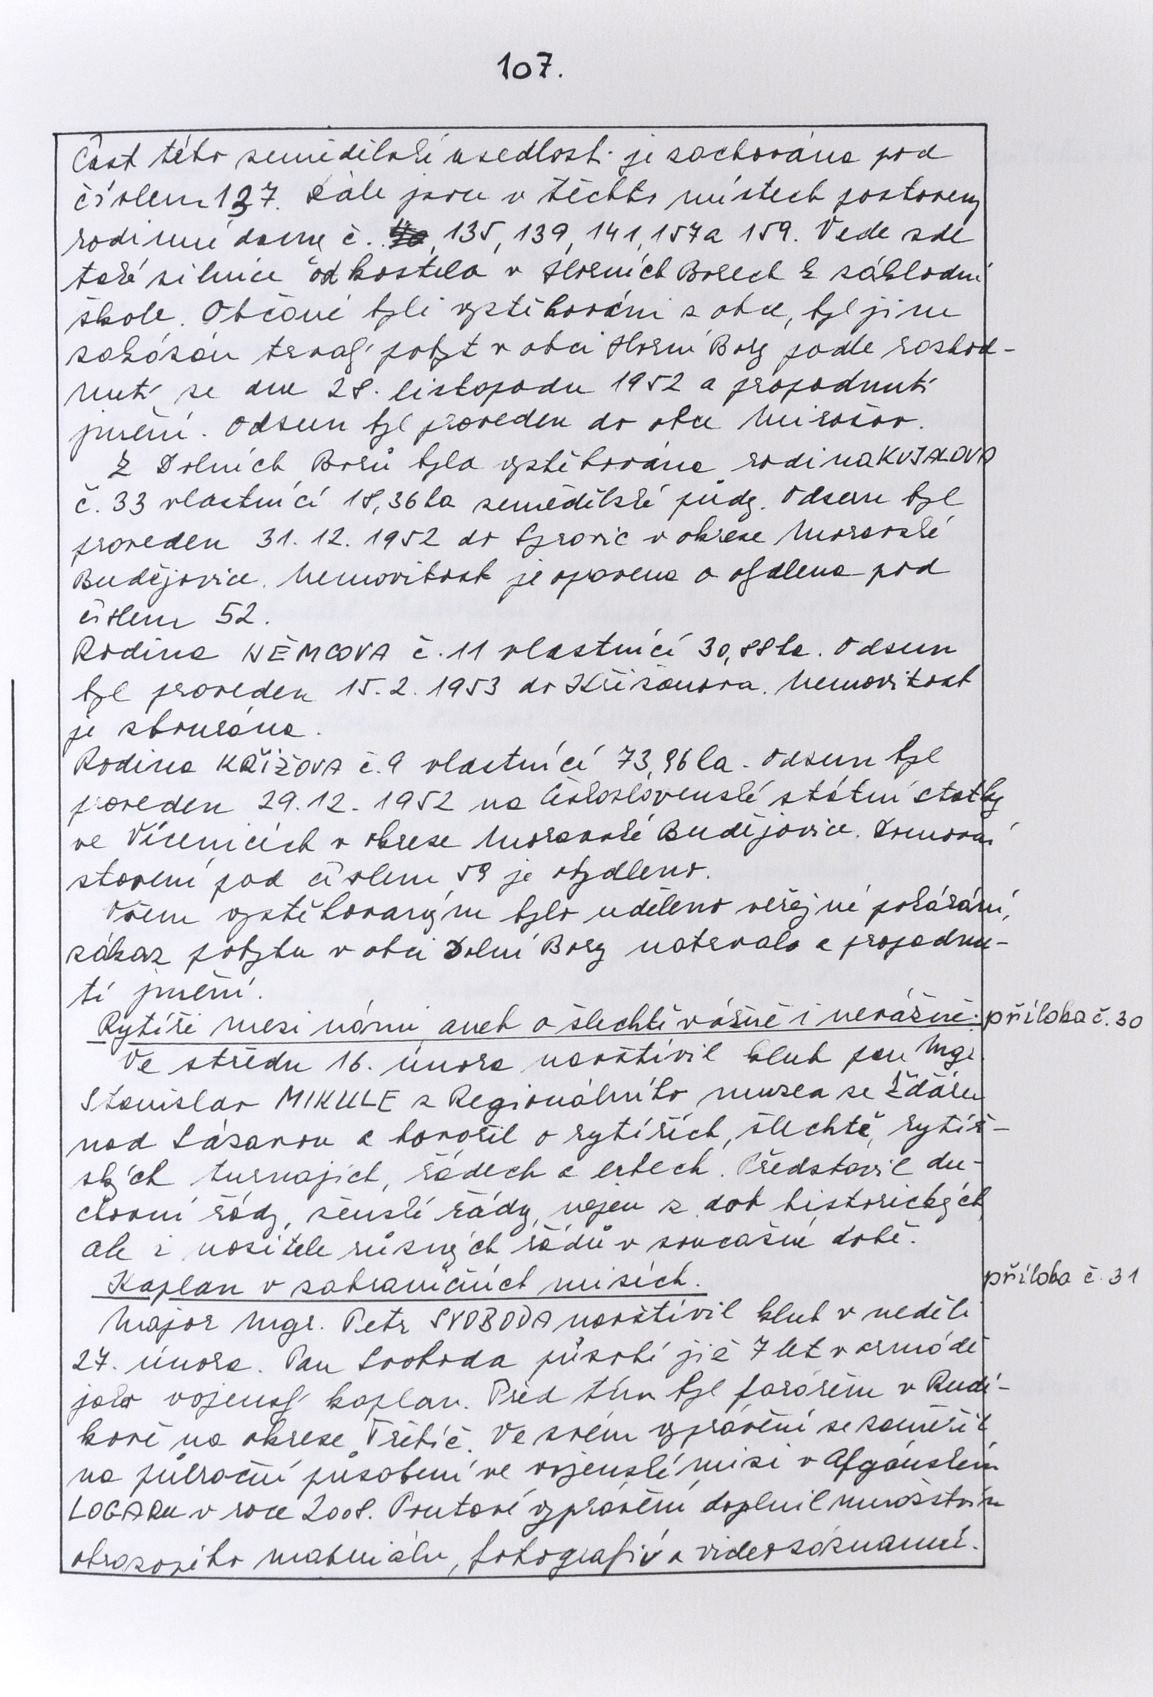 107.
Část této zemědělské usedlosti je zachována pod
číslem 137. Dále jsou v těchto místech postaveny
rodinné domy č. 135, 139, 141, 157 a 159. Vede zde
také silnice od kostela v Horních Borech k základní
škole. Občané byli vystěhováni z obce, byl jim
zakázán trvalý pobyt v obci Horní Bory podle rozhod-
nutí ze dne 28. listopadu 1952 a propadnutí
jmění. Odsun byl proveden do obce Mirošov.
Z Dolních Borů byla vystěhována rodina
č. 33 vlastnící 18,36 ha zemědělské půdy. Odsun byl
proveden 31. 12. 1952 do v okrese Moravské
Budějovice. Nemovitost je opravena a obydlena pod
číslem 52.
Rodina NĚMCOVA č. 11 vlastnící 30,88 ha. Odsun
byl proveden 15. 2. 1953 do Křižanova. Nemovitost
je zbourána.
Rodina KŘÍŽOVA č. 9 vlastnící 73,96 ha. Odsun byl
proveden 29. 12. 1952 na Československé státní statky
ve Vícenicích v okrese Moravské Budějovice. Domovní
stavení pod číslem 59 je obydleno.
Všem vystěhovaným bylo uděleno veřejné pokárání,
zákaz pobytu v obci Dolní Bory natrvalo a propadnu-
tí jmění.
Rytíři mezi námi aneb o šlechtě vážně i nevážně. příloha č. 30
Ve středu 16. února navštívil klub pan Mgr.
Stanislav MIKULE z Regionálního muzea ve Žďáře
nad Sázavou a hovořil o rytířích, šlechtě, rytíř-
ských turnajích, řádech a erbech. Představil du-
chovní řády, ženské řády, nejen z dob historických,
ale i nositele různých řádů v současné době.
Kaplan v zahraničních misích. příloha č. 31
Major Mgr. Petr SVOBODA navštívil klub v neděli
27. února. Pan Svoboda působí již 7 let v armádě
jako vojenský kaplan. Před tím byl farářem v Rudí-
kově na okrese Třebíč. Ve svém vyprávění se zaměřil
na půlroční působení ve vojenské misi v Afgánském
LOGARu v roce 2008. Poutavé vyprávění doplnil množstvím
obrazového materiálu, fotografií a videozáznamů.